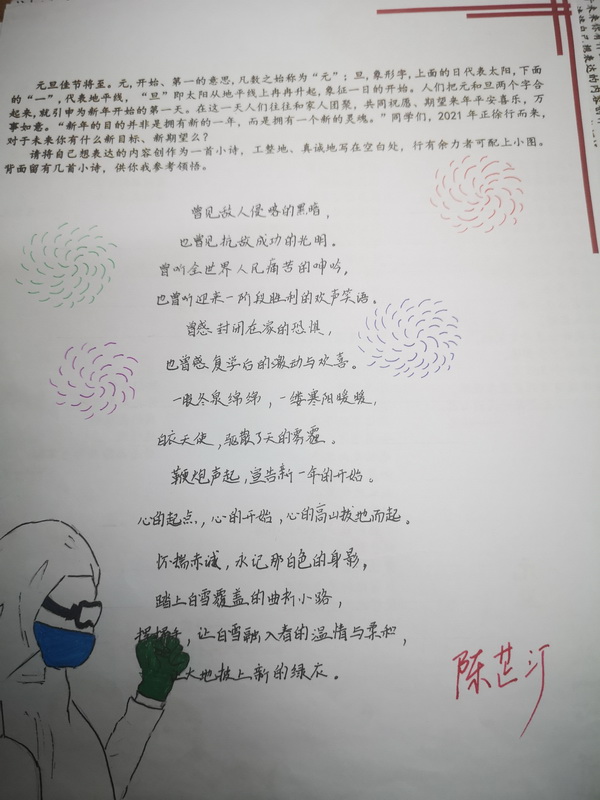 元旦佳节将至。元，开始、第一的意思，凡数之始称为“元”；旦，象形字，上面的日代表太阳，下面
的“一”，代表地平线，“旦”即太阳从地平线上冉冉升起，象征一日的开始。人们把元和旦两个字合
起来，就引申为新年开始的第一天。在这一天人们往往和家人团聚，共同祝愿、期望来年平安喜乐，万
事如意。“新年的目的并非是拥有新的一年，而是拥有一个新的灵魂。”同学们，2021年正徐行而来，
对于未来你有什么新目标、新期望么？
请将自己想表达的内容创作为一首小诗，工整地、真诚地写在空白处，行有余力者可配上小图。
背面留有几首小诗，供你我参考领悟。
曾见敌人侵略的黑暗，
也曾见抗敌成功的光明。
曾听全世界人民痛苦的呻吟，
也曾听迎来一阶段胜利的欢声笑语。
曾感封闭在家的恐惧，
也曾感复学后的激动与欢喜。
一眼冬泉绵绵，一缕寒阳暖暖，
白衣天使，驱散了天的雾霾。
鞭炮声起，宣告新一年的开始。
心的起点，心的开始，心的高山拔地而起。
怀揣赤诚，永记那白色的身影，
踏上白雪覆盖的曲折小路，
让白雪融入春的温情与柔和，
大地披上新的绿衣。
陈芷汀